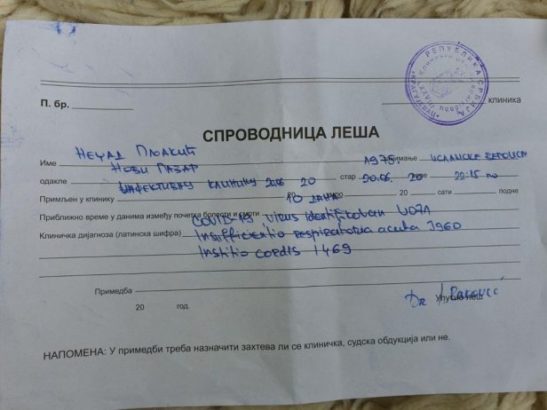 РЕПУБЛИКА СРБИЈА
П. бр.
клиника
СПРОВОДНИЦА ЛЕША
Име Нечад Пљакић 1975. занимање исламске вероисп
одакле Нови Пазар стар
Примљен у клинику Инфективну клинику 20 20 до 20.06. 20 сати 22:15 по подне
Приближно време у данима између почетка болести и смрти 10 дана
Клиничка дијагноза (латинска шифра) COVID-19 virus identifikovan U07.1
Insufficientio respiratoria acuta J960
Institio cordis I469
Примедба
20 год.
Dr
Упутио леш
НАПОМЕНА: У примедби треба назначити захтева ли се клиничка, судска обдукција или не.